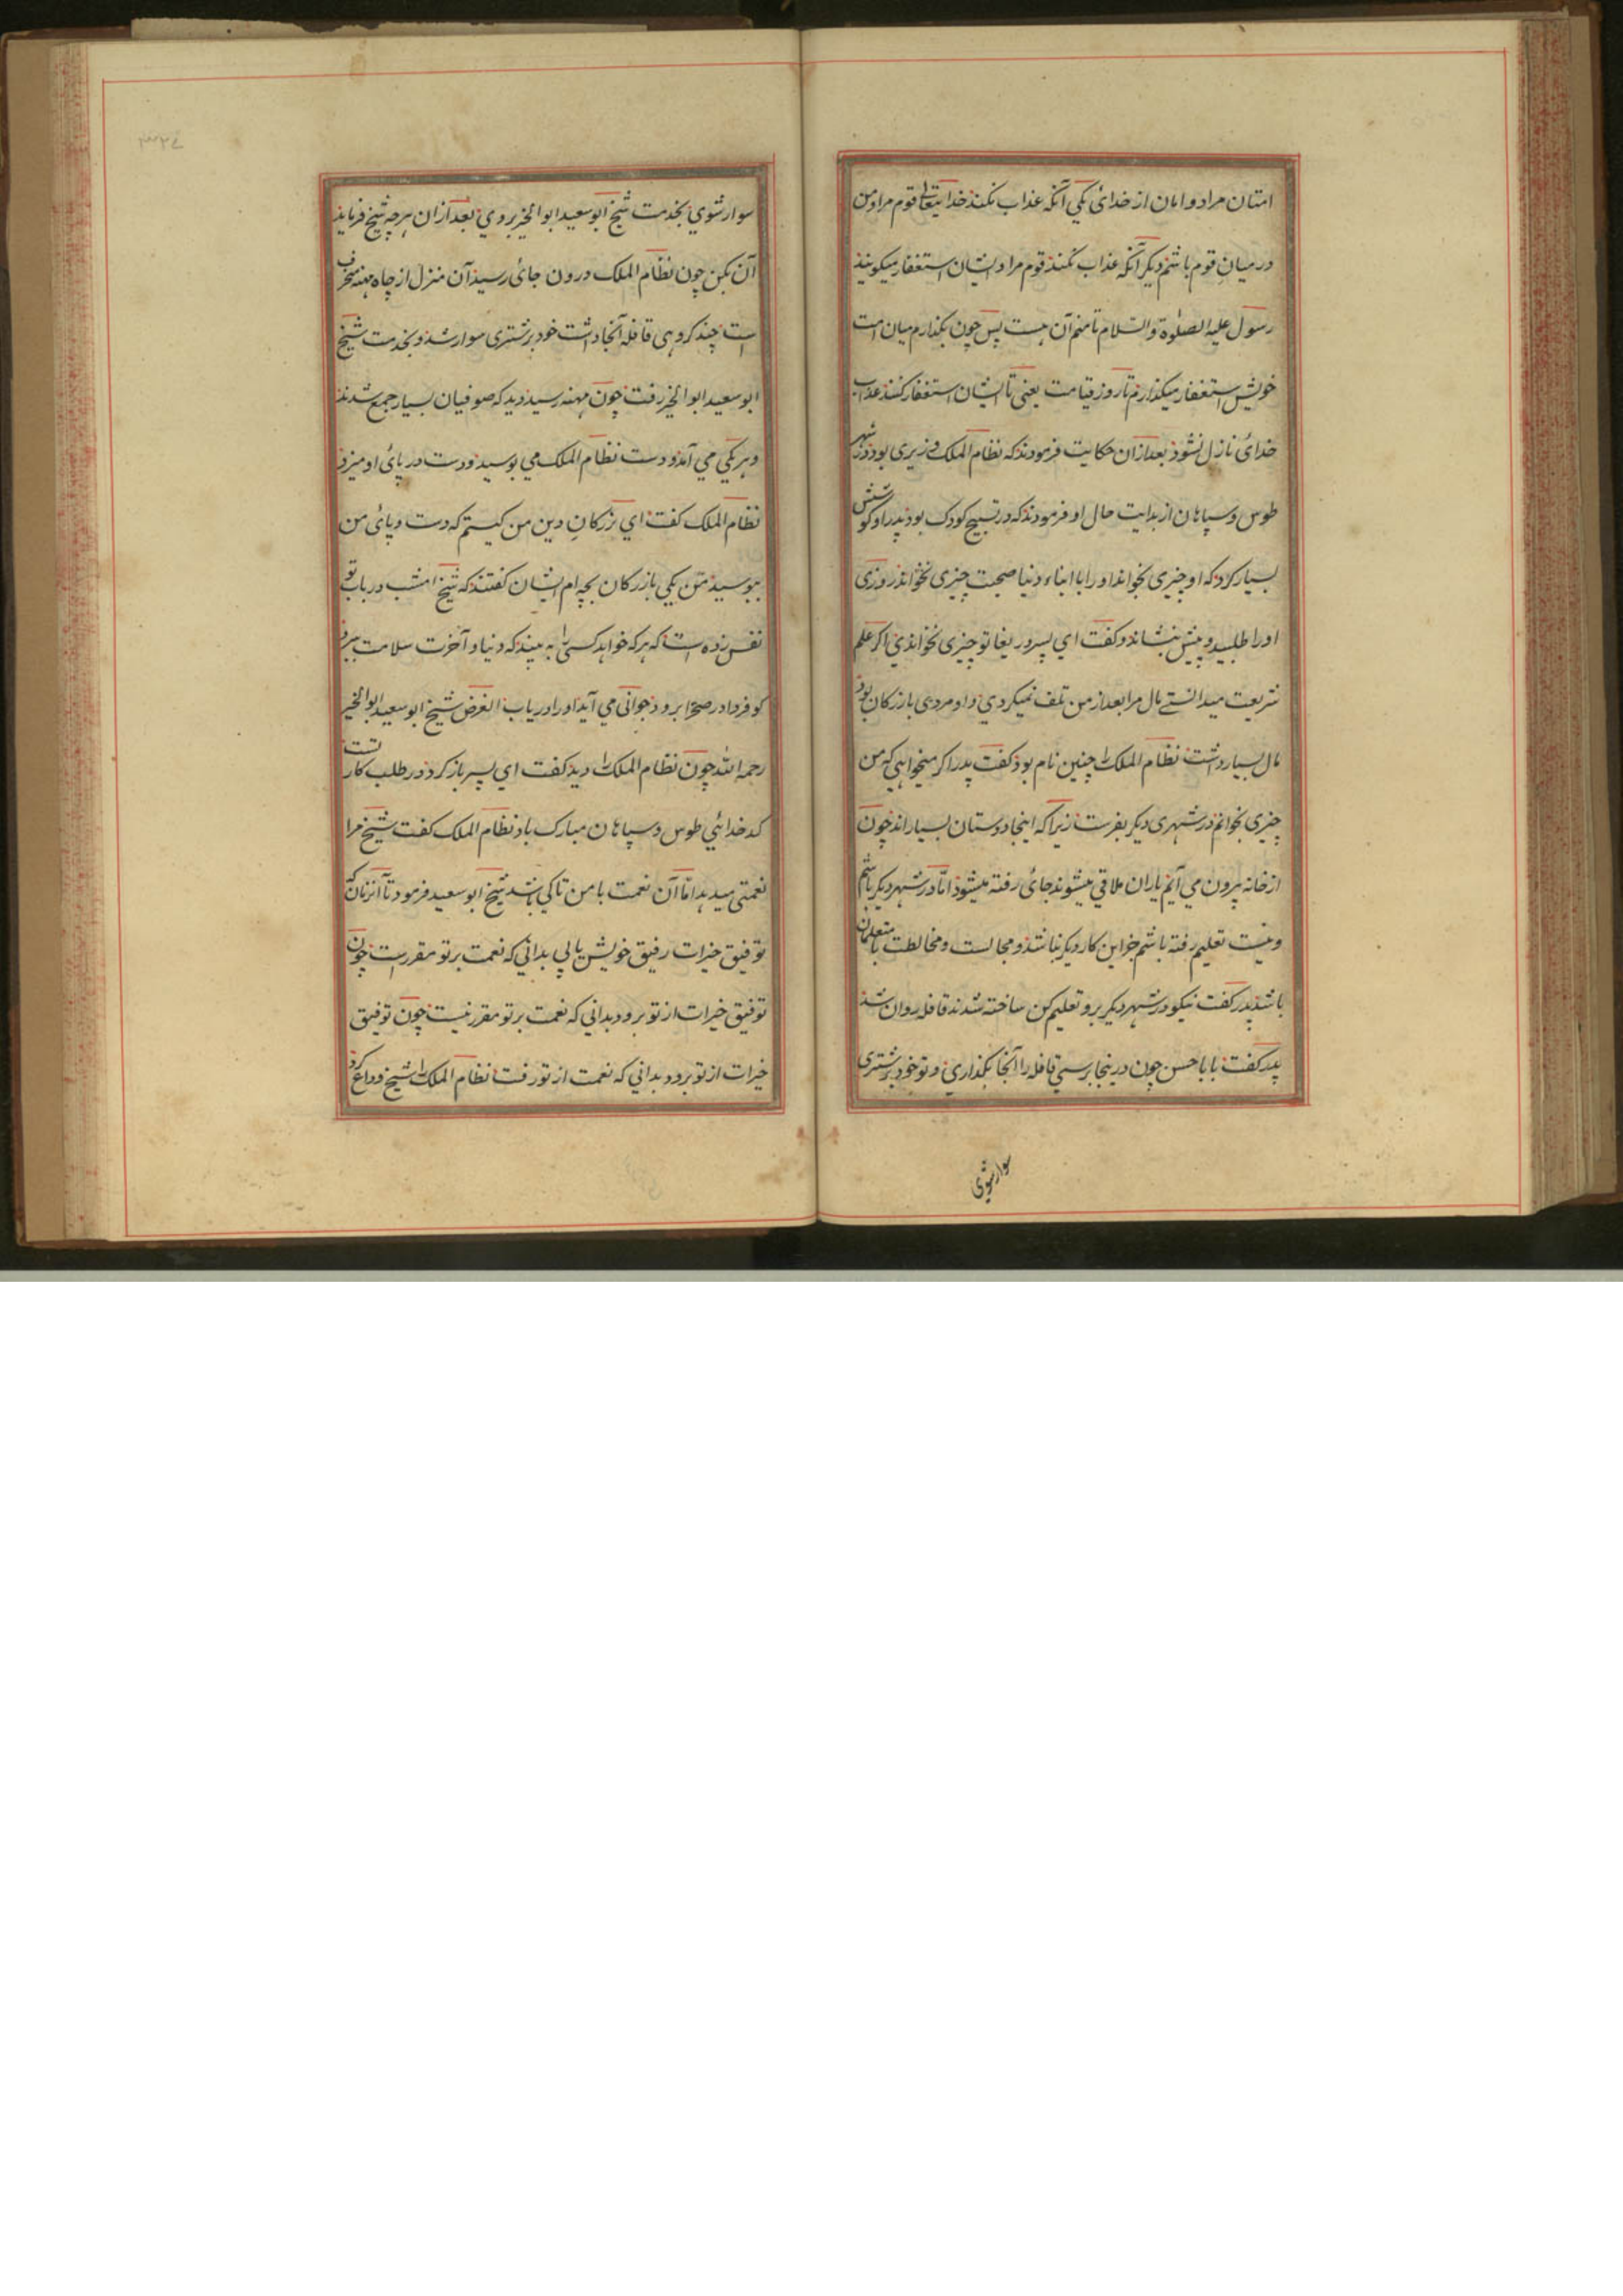 امتان مراد و امان از خدائ یکی آنکه عذاب نکند خدایتعالی قوم مرا و من
در میان قوم باشم دیگر آنکه عذاب نکند قوم مرا و ایشان استغفار میکویند
رسول علیه الصلوة والسلام تا منم آن هست پس چون بگذارم میان امت
خویش استغفار میگذارم تا روز قیامت یعنی تا ایشان استغفار کنند عذاب
خدائ نازل نشود بعد ازان حکایت فرمودند که نظام الملک وزیری بود در شهر
طوس و سپاهان از بدایت حال او فرمودند که در تسبیح کودک بود پدر او کوشش
بسیار کرد که او چیزی بخواند او را با ابناء دنیا صحبت چیزی نخواند روزی
او را طلبید و پیش بنشاند و کفت ای پسر دریغا تو چیزی نخواندی اگر علم
شریعت میدانستے مال مرا بعد از من تلف نمیکردی و او مردی بازرکان بود
مال بسیار داشت نظام الملک را چنین نام بود کفت پدر اکر میخواهی که من
چیزی بخوانم در شهری دیکر بفرست زیرا که اینجا دوستان بسیار اند چون
از خانه بیرون می آیم یاران ملاقی میشوند جائی رفته میشود اما در شهر دیکر باشم
و نیت تعلیم رفته باشم جز این کار دیکر نباشد و مجالست و مخالطت با متعلمان
باشد پدر کفت نیکو در شهر دیکر برو تعلیم کن ساخته شدند قافله روان شد
پدر کفت بابا حسن چون در ینجا برسی قافله را آنجا بگذاری و تو خود بر شتری
سوار شوی
۳۲۷
سوار شوی بخدمت شیخ ابو سعید ابو الخیر بروی بعد ازان هرچه شیخ فرماید
آن بکن چون نظام الملک درون جائ رسید آن منزل از چاه مهنه منحرف
است چند کروهی قافله آنجا داشت خود بر شتری سوار شد و بخدمت شیخ
ابو سعید ابو الخیر رفت چون مهنه رسید دید که صوفیان بسیار جمع شدند
و هر یکی می آمد و دست نظام الملک می بوسید و دست در پائ او میزد
نظام الملک کفت ای بزرکان دین من کیستم که دست و پائ من
ببوسید من یکی بازرکان بچه ام ایشان کفتند که شیخ امشب در باب تو
نفس زده است که هر که خواهد کسی را به بیند که دنیا و آخرت سلامت ببرد
کو فردا در صحرا برود جوانی می آید او را دریاب الغرض شیخ ابو سعید ابو الخیر
رحمه الله چون نظام الملک را دید کفت ای پسر باز کرد در طلب کار تست
کدخدائی طوس و سپاهان مبارک باد نظام الملک کفت شیخ مرا
نعمتی میدهد اما آن نعمت با من تا کی باشد شیخ ابو سعید فرمود تا آنزمان که
توفیق خیرات رفیق خویش یابی بدانی که نعمت بر تو مقررست چون
توفیق خیرات از تو برود بدانی که نعمت بر تو مقرر نیست چون توفیق
خیرات از تو برود بدانی که نعمت از تو رفت نظام الملک را شیخ وداع کرد